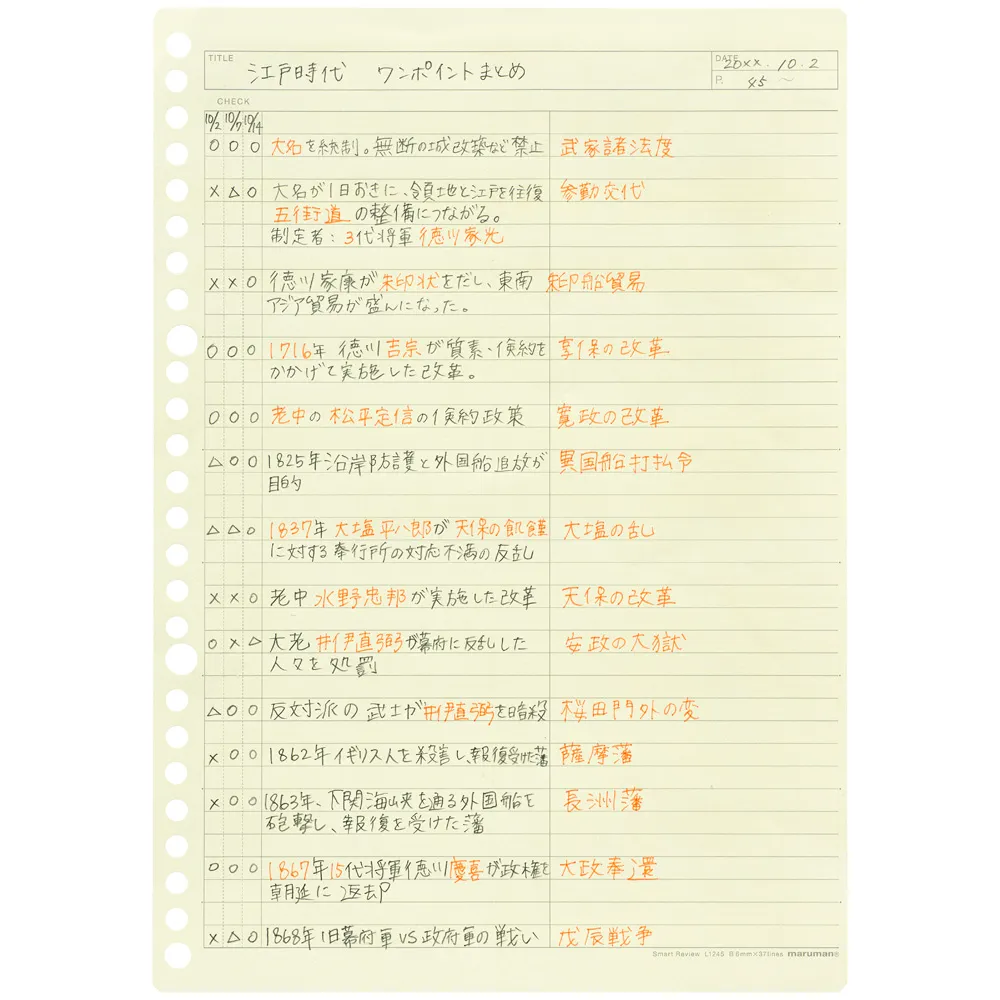 TITLE 江戸時代 ワンポイントまとめ DATE 20xx. 10. 2
P. 45 〜
CHECK
10/2 10/7 10/14
○ ○ ○ 大名を統制。無断の城改築など禁止 武家諸法度
× △ ○ 大名が1日おきに、領地と江戸を往復 参勤交代
五街道 の整備につながる。
制定者：3代将軍 徳川家光
× × ○ 徳川家康が朱印状をだし、東南 朱印船貿易
アジア貿易が盛んになった。
○ ○ ○ 1716年 徳川吉宗が質素・倹約を 享保の改革
かかげて実施した改革。
○ ○ ○ 老中の松平定信の倹約政策 寛政の改革
△ ○ ○ 1825年沿岸防護と外国船追放が 異国船打払令
目的
△ △ ○ 1837年 大塩平八郎が天保の飢饉 大塩の乱
に対する奉行所の対応不満の反乱
× × ○ 老中 水野忠邦が実施した改革 天保の改革
○ × △ 大老 井伊直弼が幕府に反乱した 安政の大獄
人々を処罰
△ ○ ○ 反対派の武士が井伊直弼を暗殺 桜田門外の変
× ○ ○ 1862年イギリス人を殺害し、報復受けた藩 薩摩藩
× ○ ○ 1863年、下関海峡を通る外国船を 長洲藩
砲撃し、報復を受けた藩
○ ○ ○ 1867年15代将軍徳川慶喜が政権を 大政奉還
朝廷に返却
× △ ○ 1868年旧幕府軍VS政府軍の戦い 戊辰戦争
Smart Review L1246 B 6mm×37lines maruman®